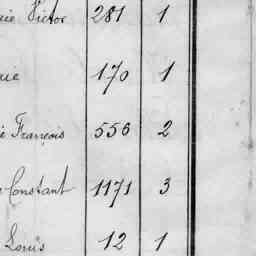 Victor 281 1
170 1
François 556 2
Constant 1171 3
Louis 12 1